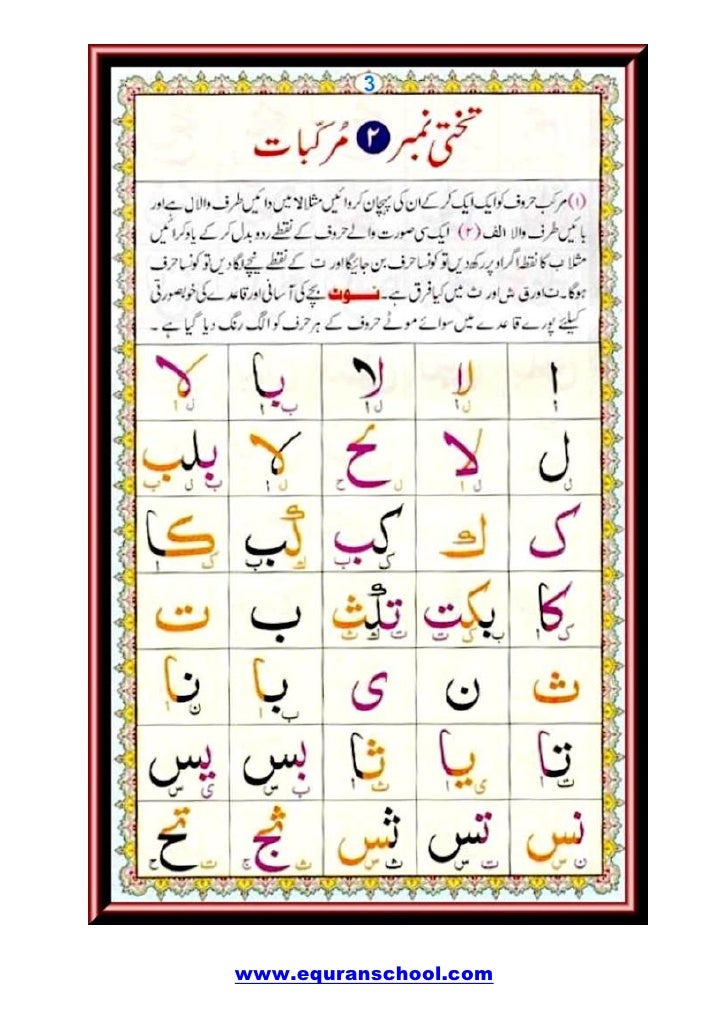 3
تختی نمبر ۲ مُرکّبات
(۱) مرکب حروف کو ایک ایک کر کے ان کی پہچان کروائیں مثلا لا میں دائیں طرف والا ل ہے اور
بائیں طرف والا الف (۲) ایک سی صورت والے حروف کے نقطے ردو بدل کر کے یاد کرائیں
مثلا ب کا نقطہ اگر اوپر رکھ دیں تو کونسا حرف بن جائیگا اور ت کے نقطے نیچے لگا دیں تو کونسا حرف
ہوگا۔ ت اور ق ش اور ث میں کیا فرق ہے۔ نوٹ بچے کی آسانی اور قاعدے کی خوبصورتی
کیلئے پورے قاعدے میں سوائے موٹے حروف کے ہر حرف کو الگ رنگ دیا گیا ہے ۔
ا لا لا با لا
ل ا ل ا ب ا ل ا
ل لا لح لا بلب
ل ل ا ل ح ل ا ب ل ب
ک ك کب كب کا
ک ب ك ب ک ا
کا بکت تكث ب ت
ک ا ب ک ت ت ك ث
ث ن ی با نا
ب ا ن ا
تا یا ثا بس یس
ت ا ی ا ث ا ب س ی س
نس تس ثس ثج تح
ن س ت س ث س ث ج ت ح
www.equranschool.com